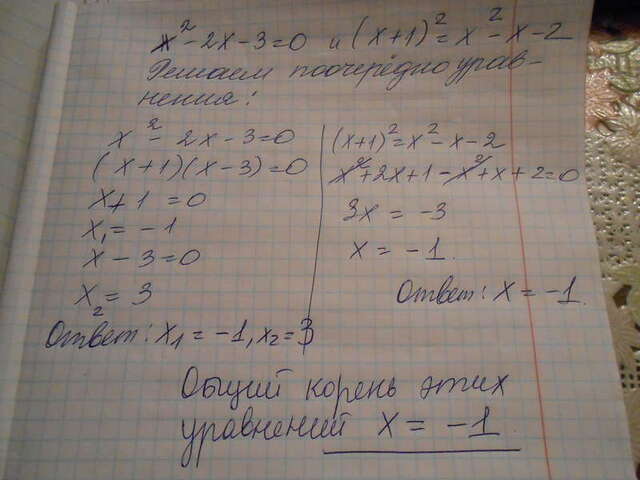 x² - 2x - 3 = 0 и (x+1)² = x² - x - 2
Решаем поочерёдно урав-
нения:
x² - 2x - 3 = 0
(x+1)(x-3) = 0
x + 1 = 0
x₁ = -1
x - 3 = 0
x₂ = 3
Ответ: x₁ = -1, x₂ = 3
(x+1)² = x² - x - 2
x² + 2x + 1 - x² + x + 2 = 0
3x = -3
x = -1.
Ответ: x = -1.
Общий корень этих
уравнений x = -1